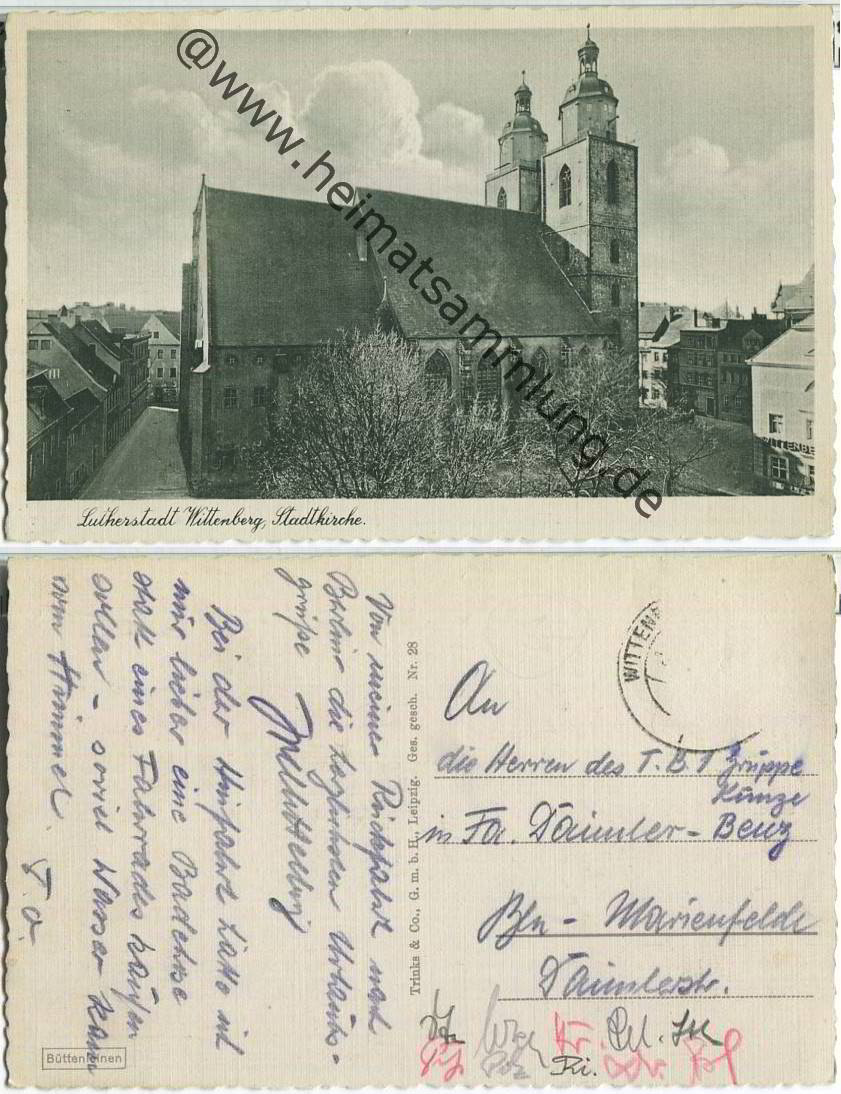 @www.heimatsammlung.de
WITTENBE
Lutherstadt Wittenberg, Stadtkirche.
Von meiner Rückfahrt nach
Berlin die herzlichsten Urlaubs-
grüße
Bei der Hinfahrt hätte ich
mir lieber eine Badehose
statt eines Fahrrades kaufen
sollen - soviel Wasser kam
vom Himmel.
D. O.
Büttenleinen
Trinks & Co., G. m. b. H., Leipzig. Ges. gesch. Nr. 28
WITTENB
An
die Herren des T.B.1 Gruppe
Kunze
in Fa. Daimler-Benz
Bln - Marienfelde
Daimlerstr.
Ri.